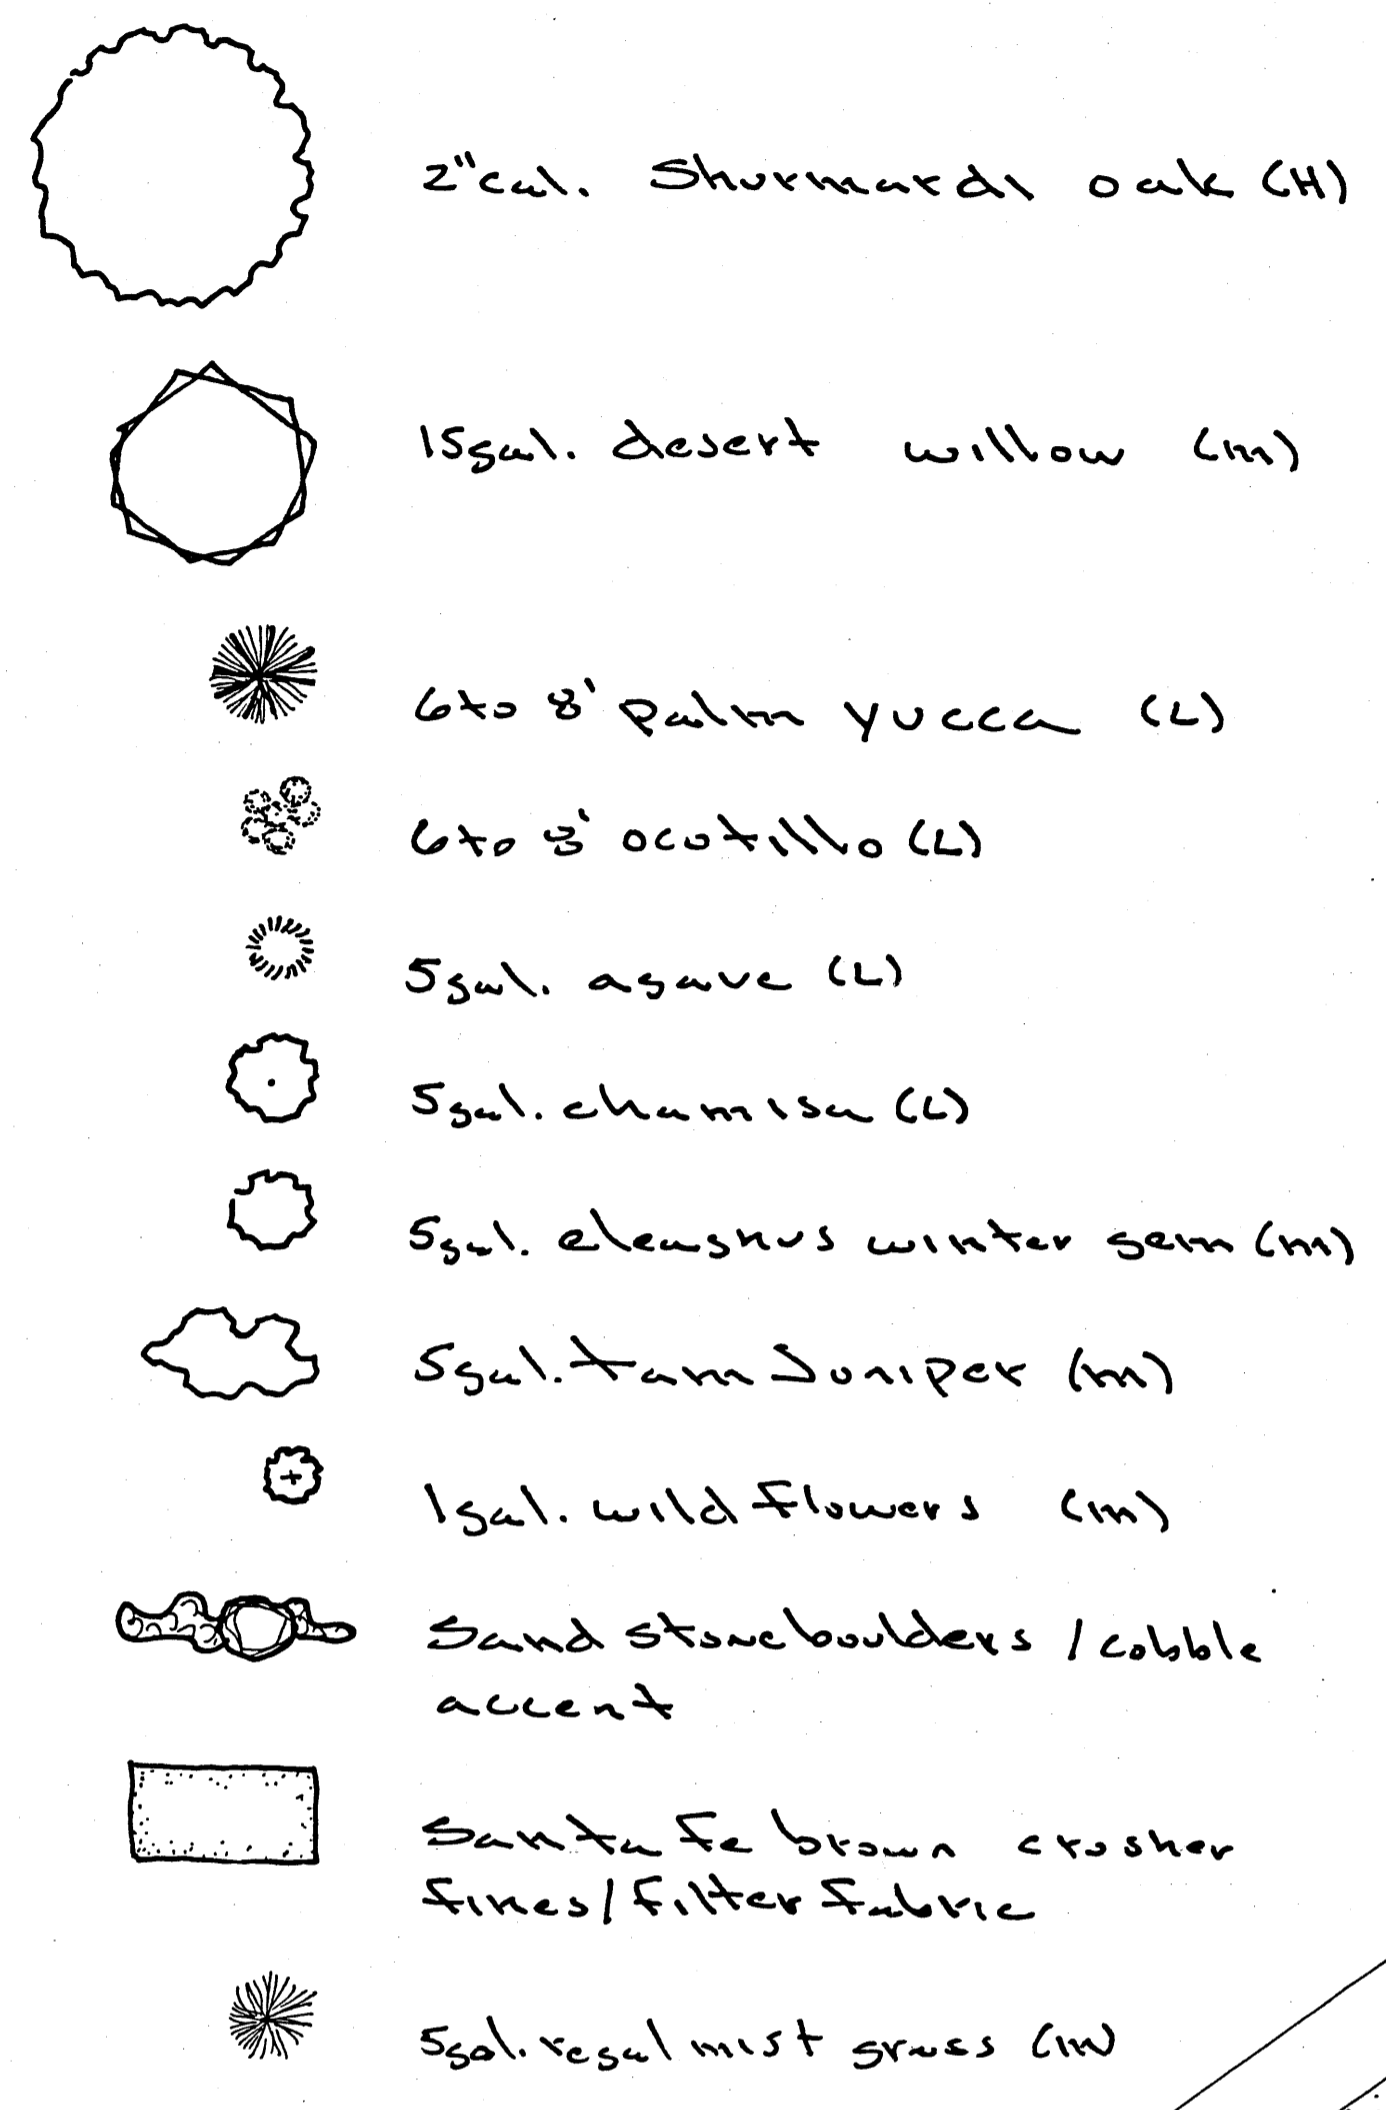 2"cal. Shurmardi oak (H)
15gal. desert willow (m)
6 to 8' palm yucca (L)
6 to 8' ocotillo (L)
5gal. agave (L)
5gal. chamisa (L)
5gal. eleagnus winter gem (m)
5gal. tam Juniper (m)
1gal. wild flowers (m)
Sand stone boulders / cobble
accent
Santa fe brown crusher
fines / filter fabric
5gal. regal mist grass (m)